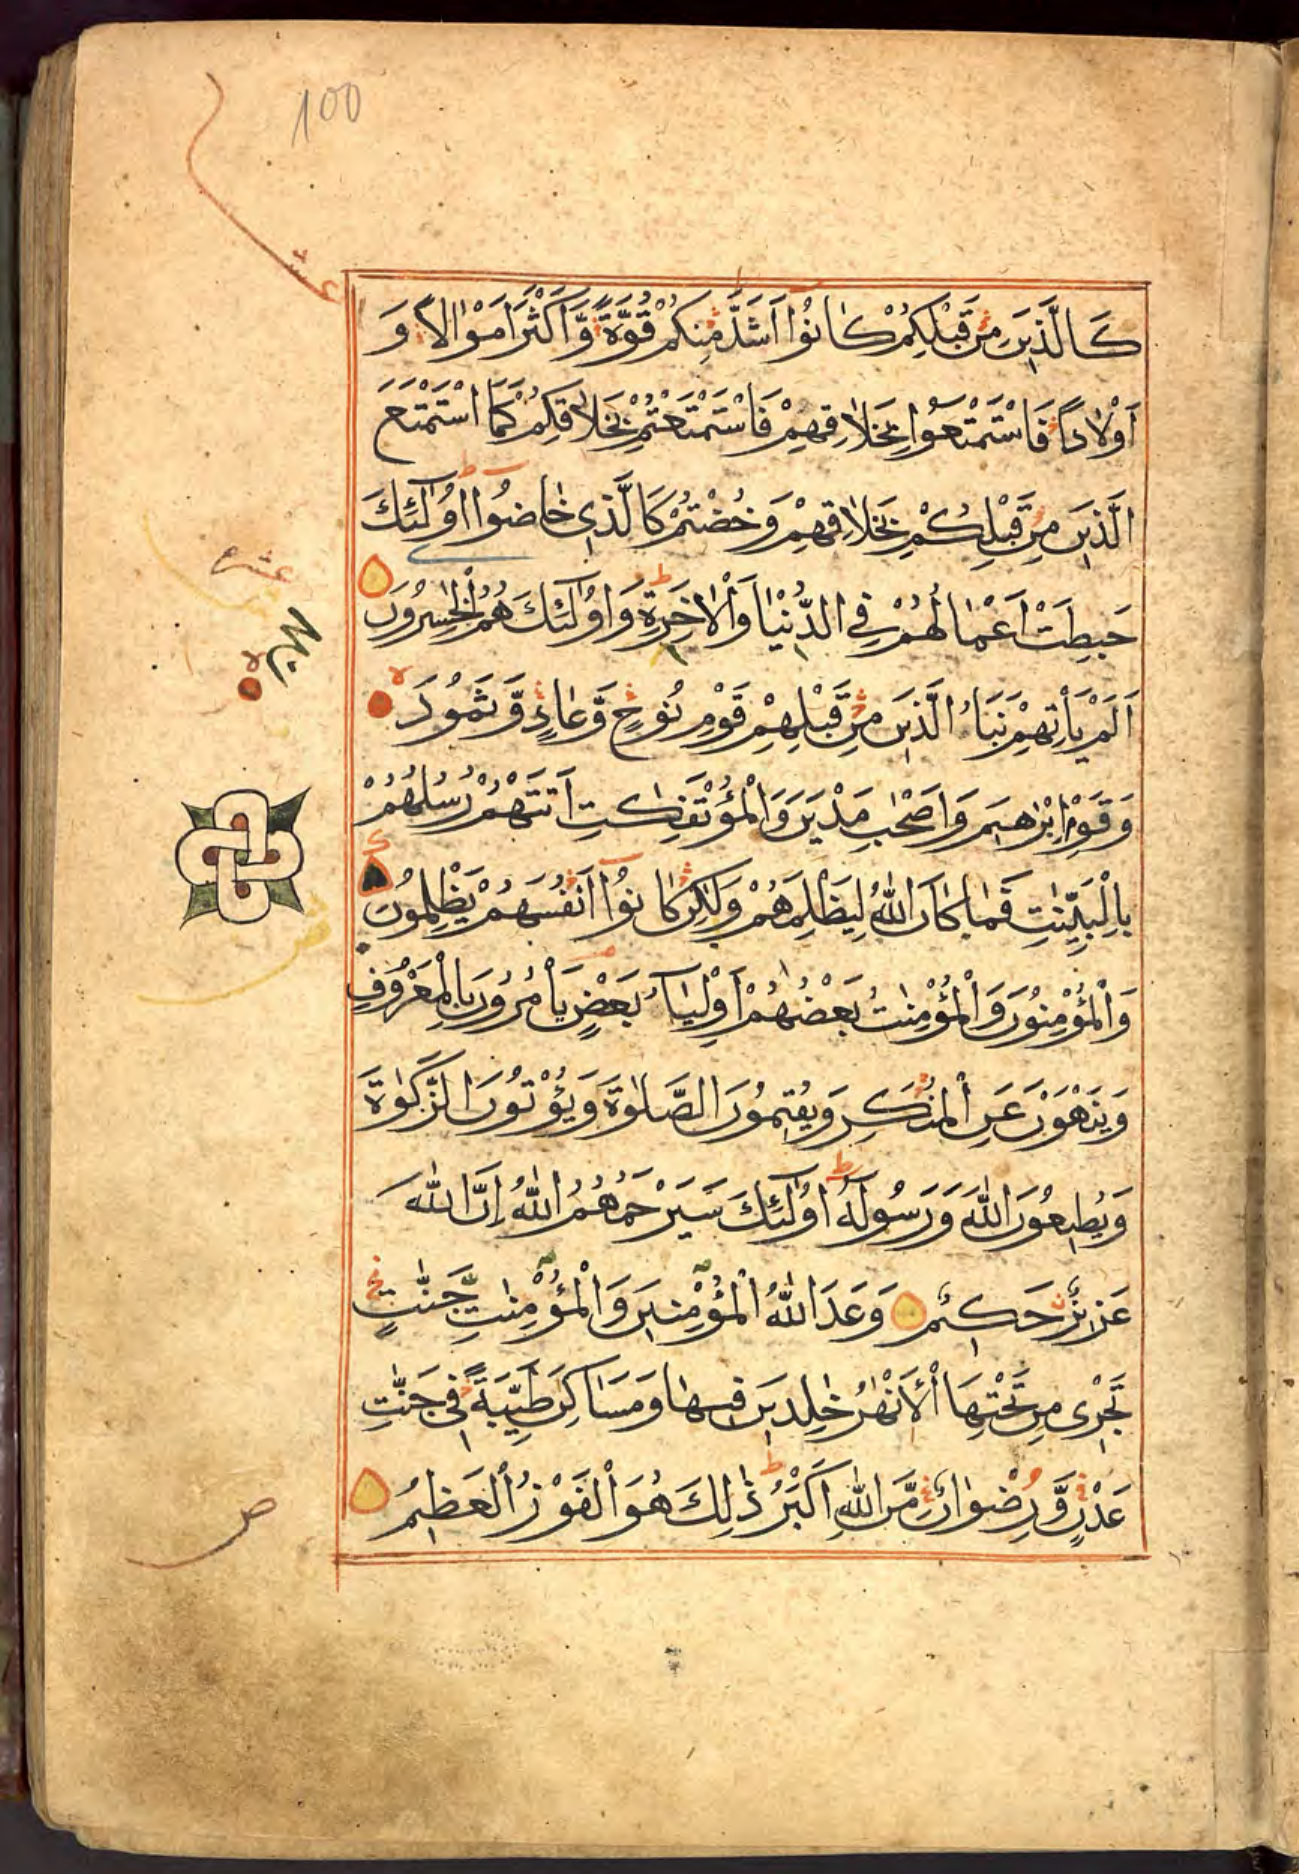 100
عشر
كَالَّذِينَ مِنْ قَبْلِكُمْ كَانُوا أَشَدَّ مِنكُمْ قُوَّةً وَّأَكْثَرَ أَمْوَالًا وَ
أَوْلَادًا فَاسْتَمْتَعُوا بِخَلَاقِهِمْ فَاسْتَمْتَعْتُمْ بِخَلَاقِكُمْ كَمَا اسْتَمْتَعَ
الَّذِينَ مِنْ قَبْلِكُمْ بِخَلَاقِهِمْ وَخُضْتُمْ كَالَّذِي خَاضُوا أُولَٰئِكَ
حَبِطَتْ أَعْمَالُهُمْ فِي الدُّنْيَا وَالْآخِرَةِ وَأُولَٰئِكَ هُمُ الْخٰسِرُونَ
أَلَمْ يَأْتِهِمْ نَبَأُ الَّذِينَ مِنْ قَبْلِهِمْ قَوْمِ نُوحٍ وَّعَادٍ وَّثَمُودَ
وَقَوْمِ إِبْرٰهِيمَ وَأَصْحٰبِ مَدْيَنَ وَالْمُؤْتَفِكٰتِ أَتَتْهُمْ رُسُلُهُمْ
بِالْبَيِّنٰتِ فَمَا كَانَ اللّٰهُ لِيَظْلِمَهُمْ وَلٰكِنْ كَانُوا أَنْفُسَهُمْ يَظْلِمُونَ
وَالْمُؤْمِنُونَ وَالْمُؤْمِنٰتُ بَعْضُهُمْ أَوْلِيَاءُ بَعْضٍ يَأْمُرُونَ بِالْمَعْرُوفِ
وَيَنْهَوْنَ عَنِ الْمُنْكَرِ وَيُقِيمُونَ الصَّلٰوةَ وَيُؤْتُونَ الزَّكٰوةَ
وَيُطِيعُونَ اللّٰهَ وَرَسُولَهُ أُولَٰئِكَ سَيَرْحَمُهُمُ اللّٰهُ إِنَّ اللّٰهَ
عَزِيزٌ حَكِيمٌ وَعَدَ اللّٰهُ الْمُؤْمِنِينَ وَالْمُؤْمِنٰتِ جَنّٰتٍ
تَجْرِي مِنْ تَحْتِهَا الْأَنْهٰرُ خٰلِدِينَ فِيهَا وَمَسَاكِنَ طَيِّبَةً فِي جَنّٰتِ
عَدْنٍ وَّرِضْوَانٌ مِّنَ اللّٰهِ أَكْبَرُ ذٰلِكَ هُوَ الْفَوْزُ الْعَظِيمُ